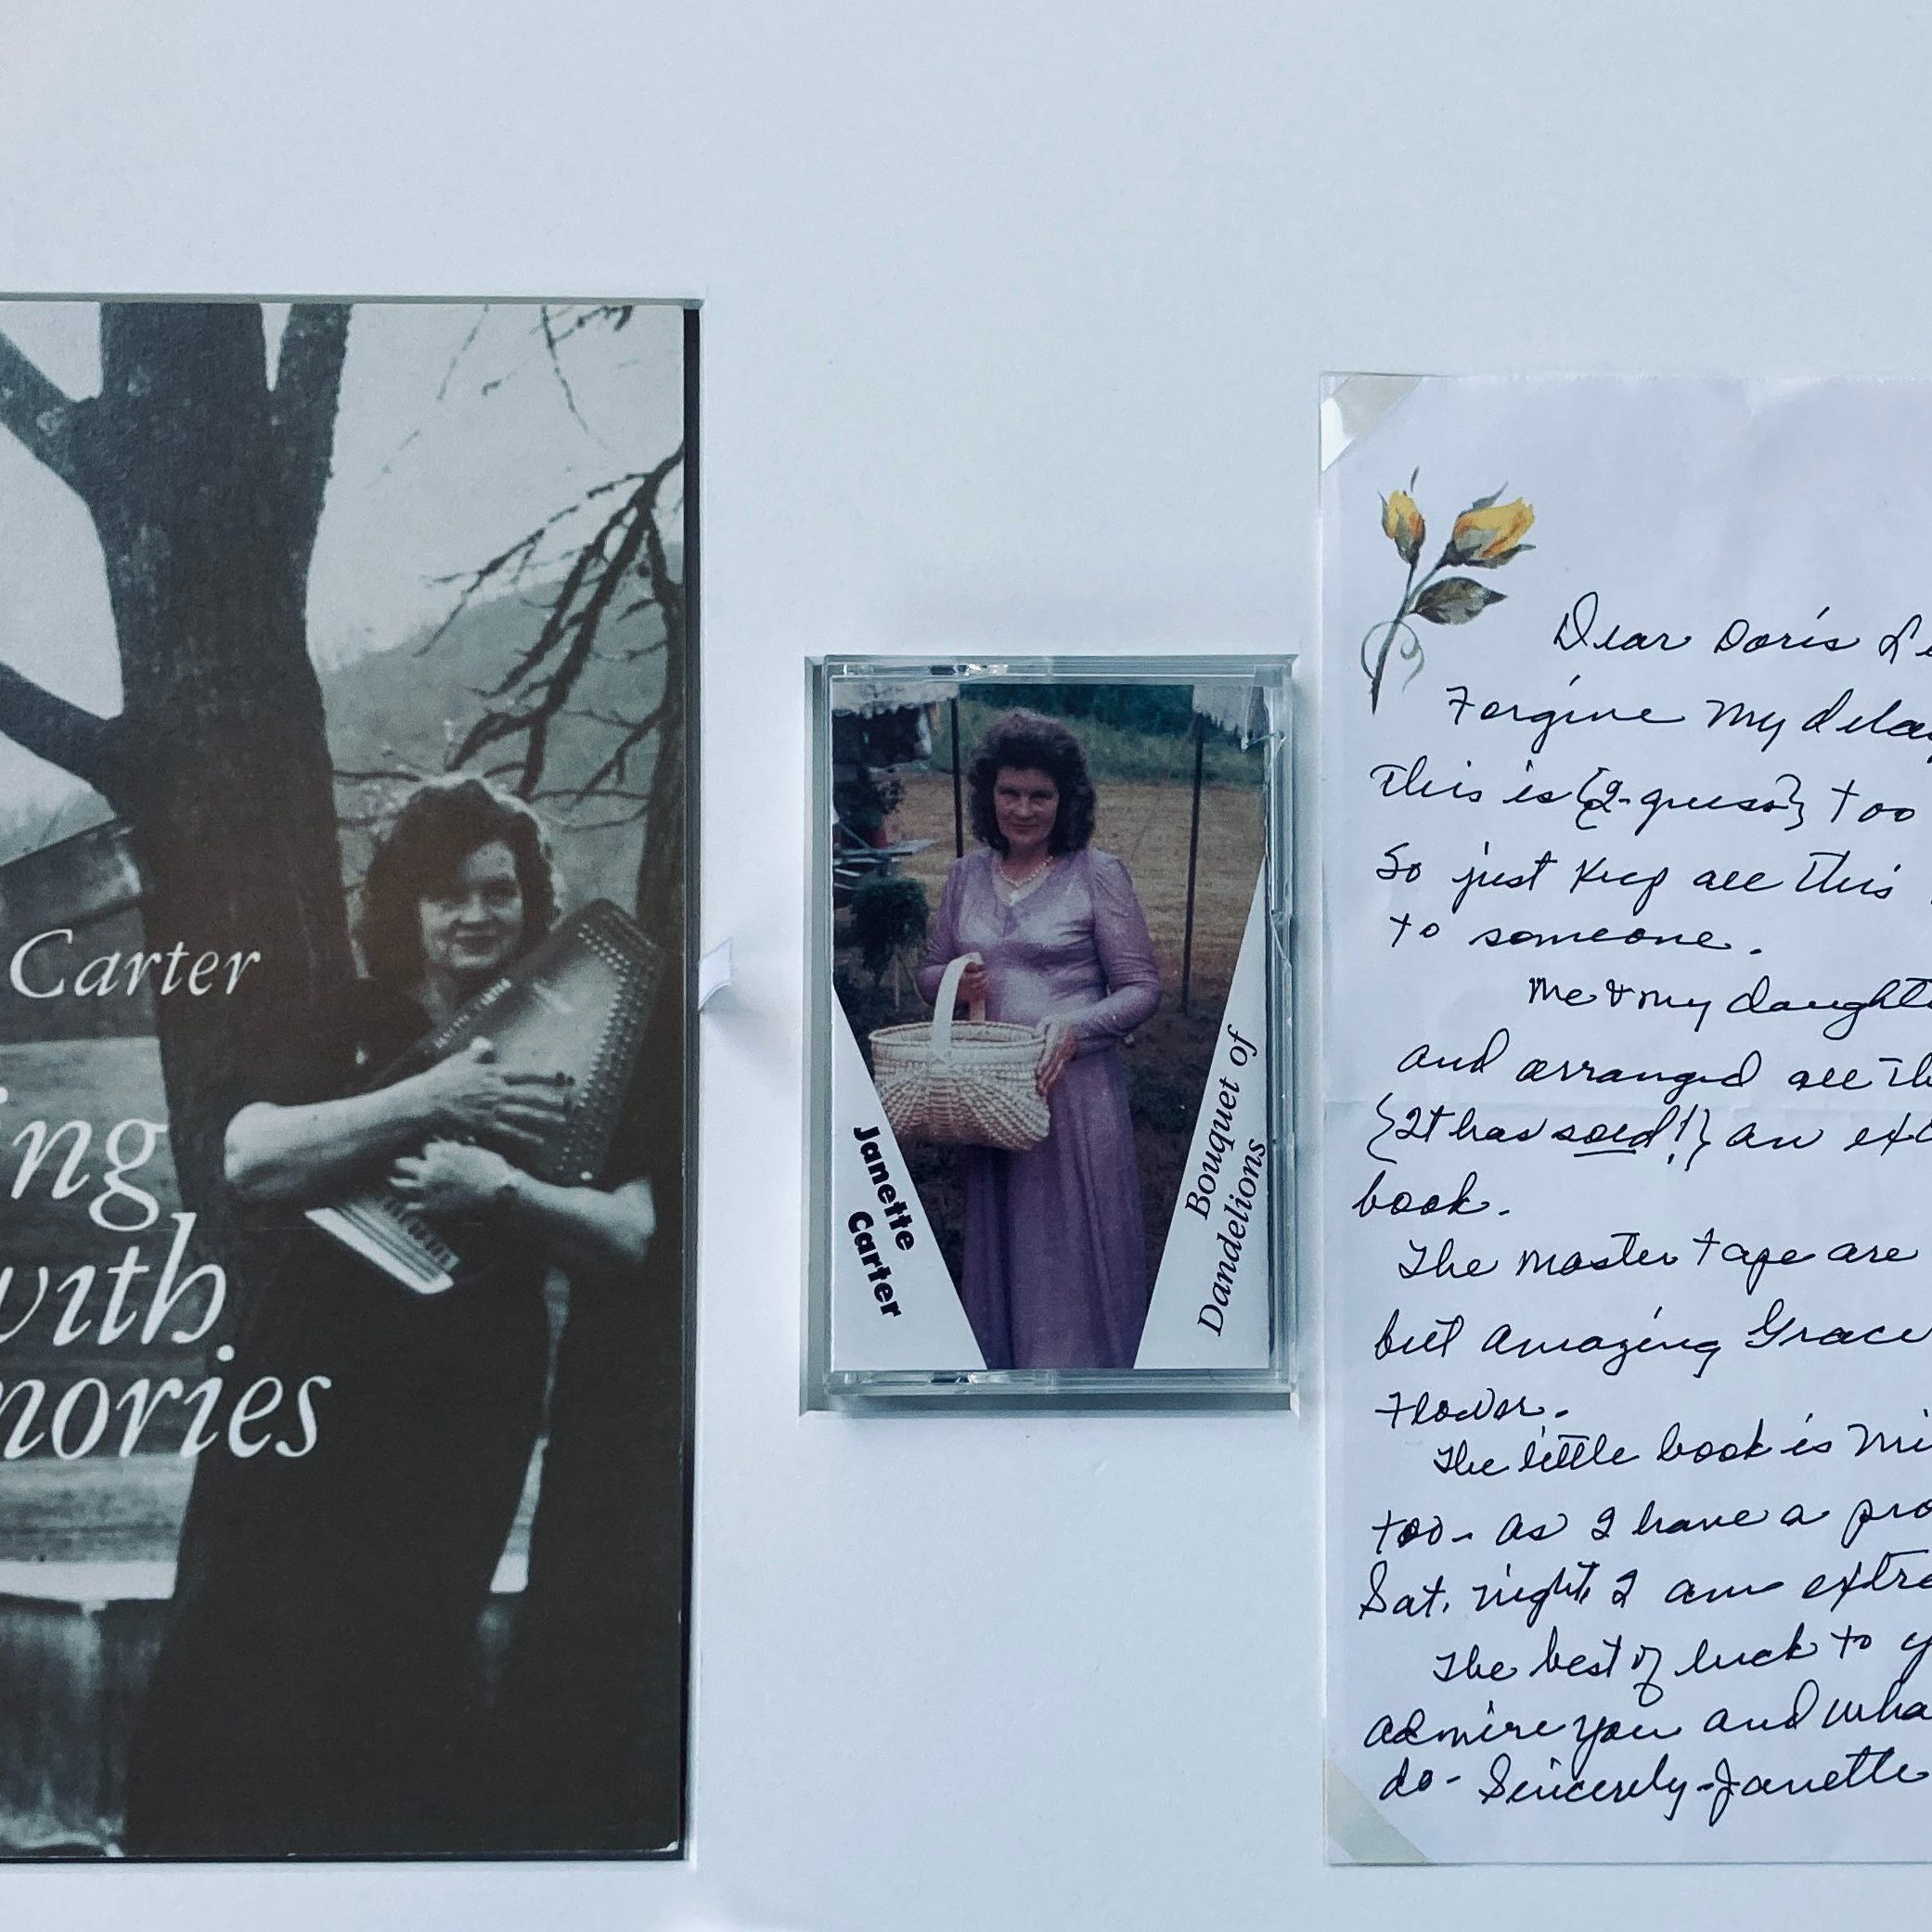 Carter
ing
with
mories
Janette
Carter
Bouquet of
Dandelions
Dear Doris L
Forgive My delay
This is {I-guess} too
So just Keep all This
to someone.
Me & my daught
and arranged all th
{It has sold!} an ext
book.
The master tape are
but Amazing Grace
Flower.
The little book is Mi
too- as I have a pro
Sat. night, I am extre
The best of luck to y
admire you and wha
do- Sincerely-Janette